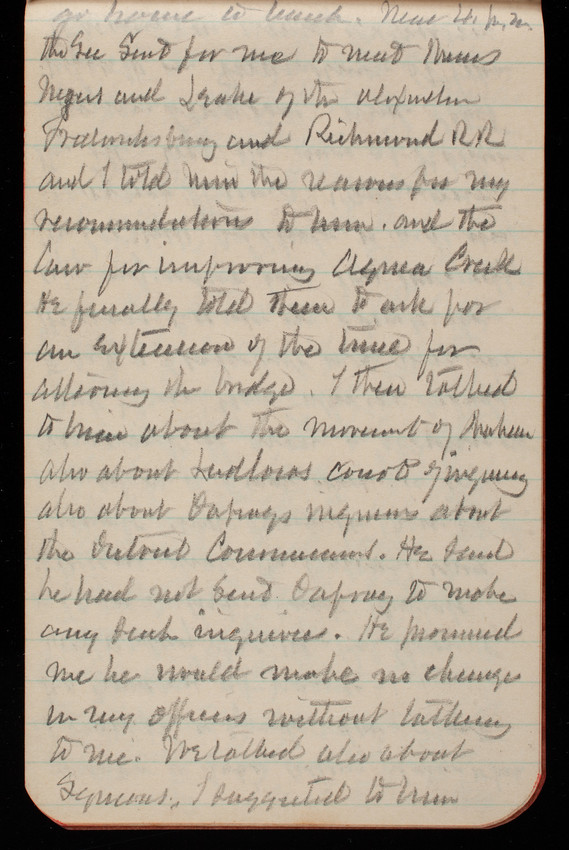 go home to lunch. Near 4. p.m.
the Sec Sent for me to meet Mess
and Leake of the Alexander
Fredericksburg and Richmond RR
and I told him the reasons for my
recommendations to him. and the
law for improving Aquia Creek
He finally told them to ask for
an Extension of the time for
altering the bridge. I then talked
to him about the movement of
also about Ludlows Court of inquiry
also about inquiries about
the Detroit Commissions. He said
he had not Send to make
any such inquiries. He promised
me he would make no change
in my Officers without talking
to me. We talked also about
I suggested to him